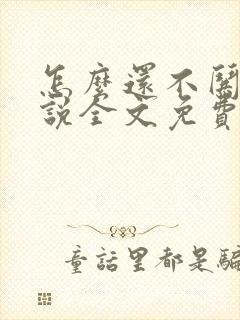 怎麼還不關
說全文免費
童話里都是騙